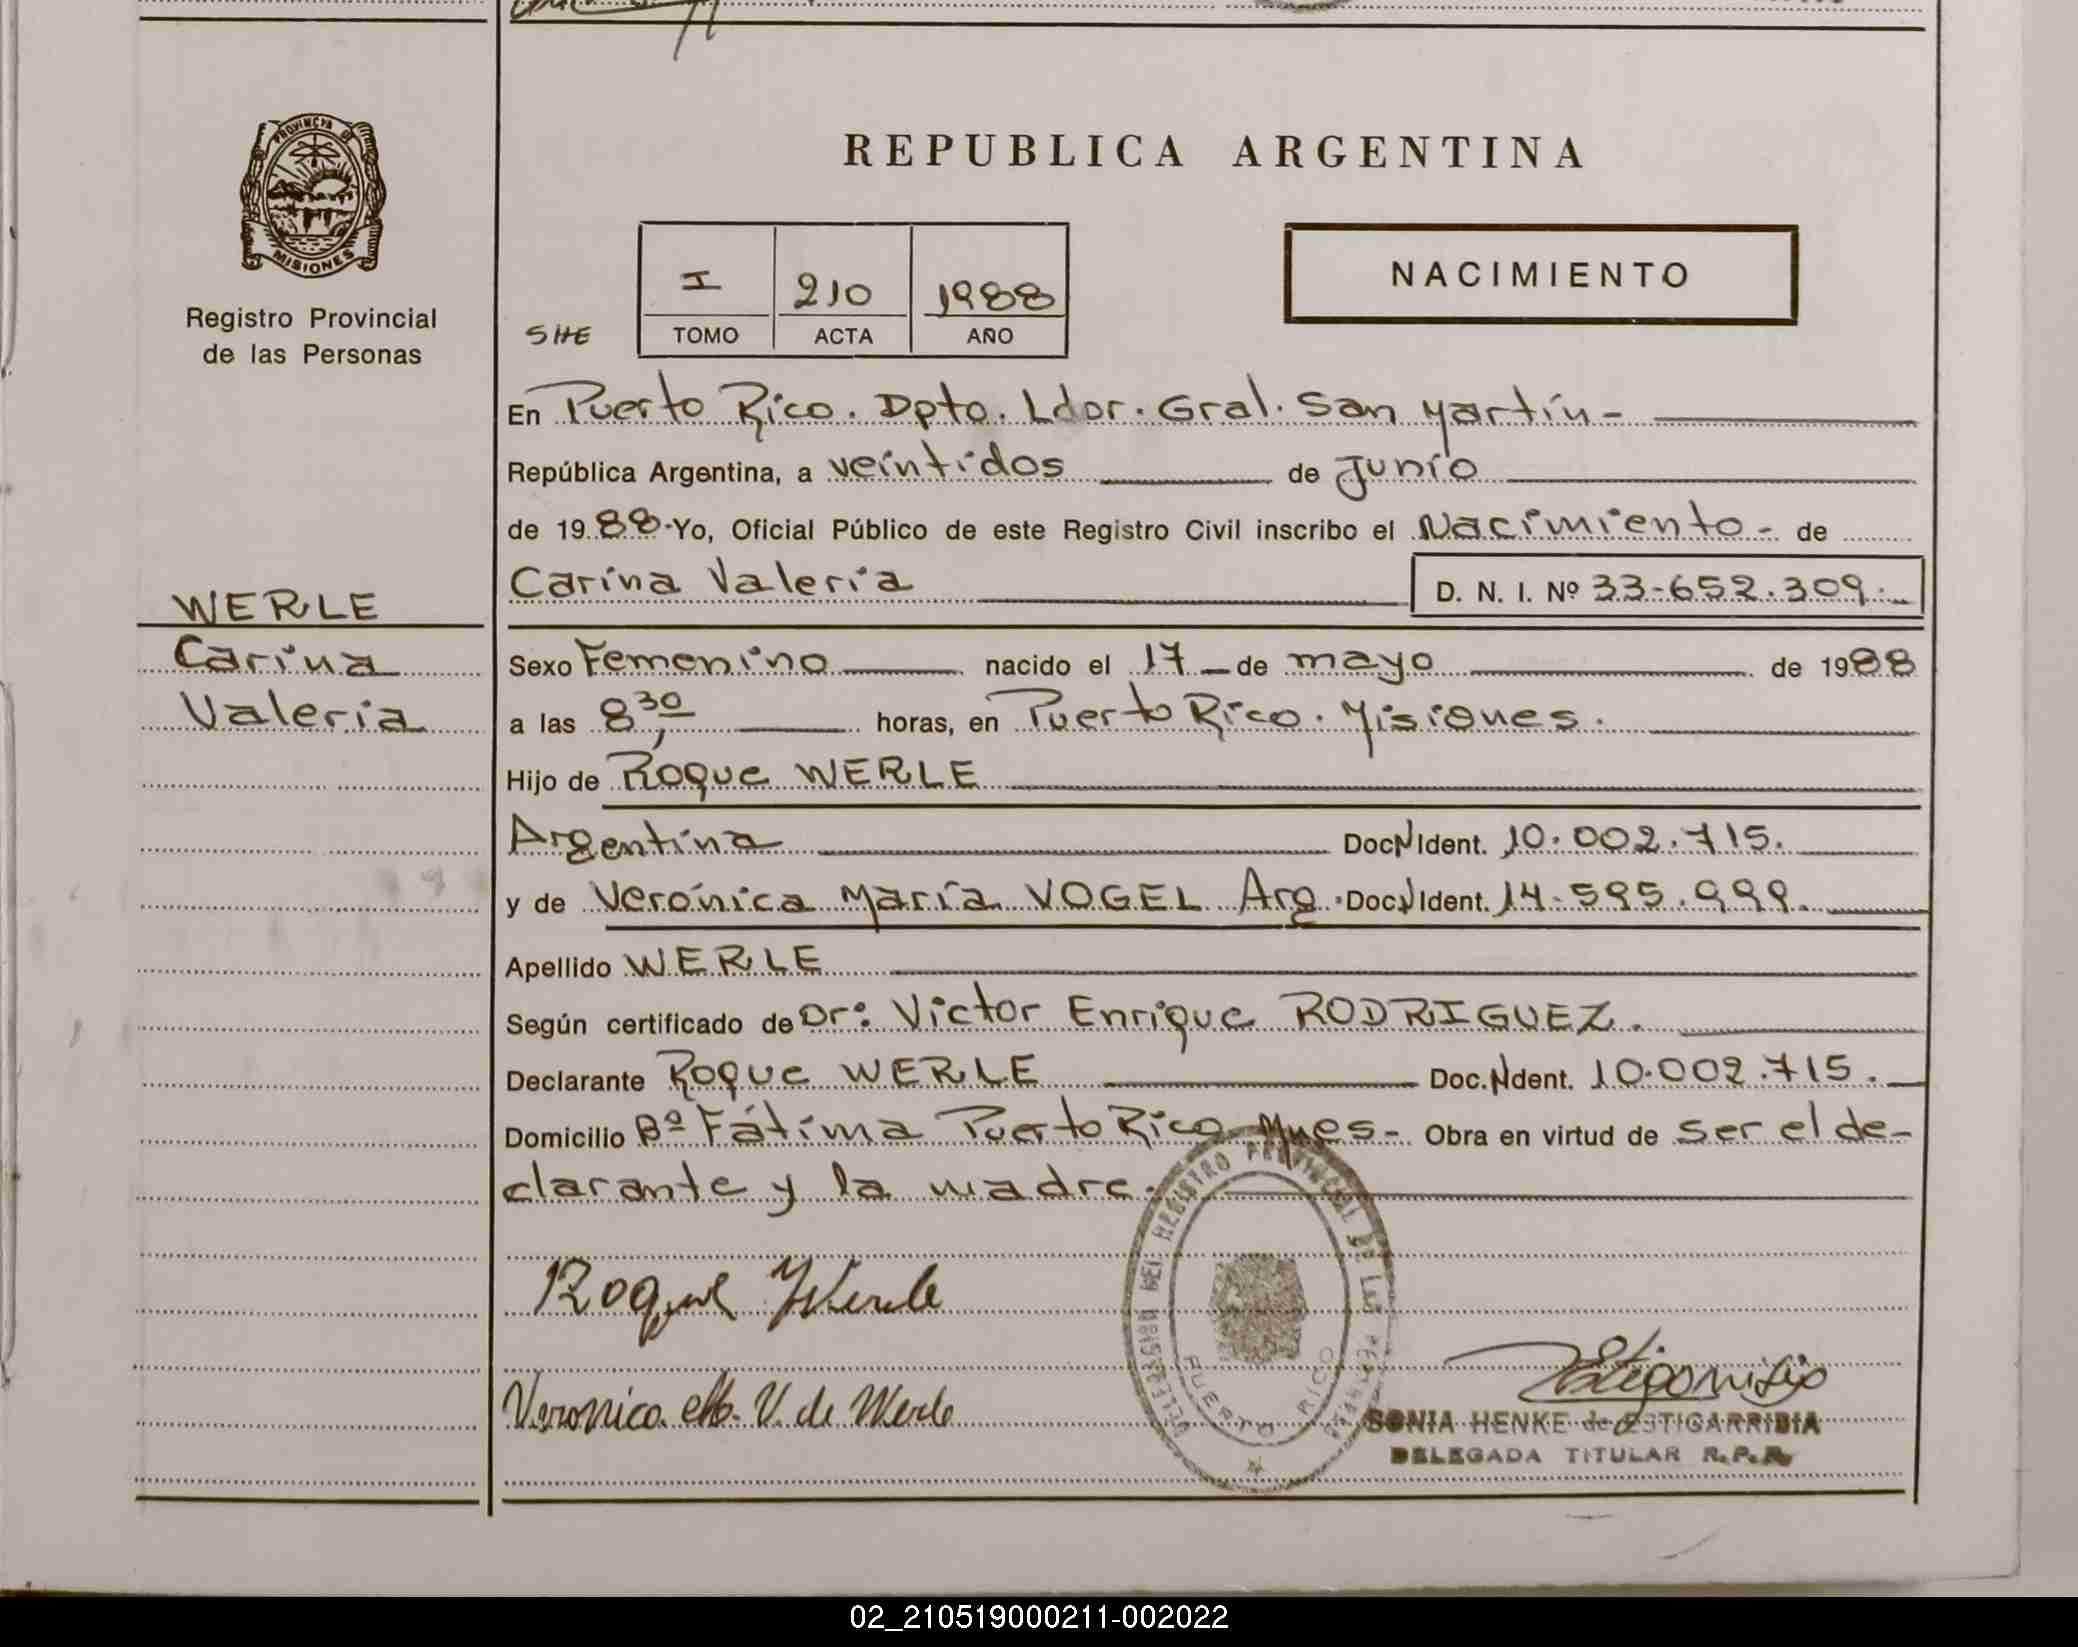 PROVINCIA DE
MISIONES
Registro Provincial
de las Personas
WERLE
Carina
Valeria
REPUBLICA ARGENTINA
I 210 1988
TOMO ACTA AÑO
NACIMIENTO
En Puerto Rico. Dpto. Ldor. Gral. San Martín-
República Argentina, a veintidos de Junio
de 1988. Yo, Oficial Público de este Registro Civil inscribo el Nacimiento- de
Carina Valeria D. N. I. Nº 33-652.309.
Sexo Femenino nacido el 17 de mayo de 1988
a las 8,30 horas, en Puerto Rico. Misiones.
Hijo de Roque WERLE
Argentina Doc. N Ident. 10.002.715.
y de Verónica María VOGEL Arg. Doc. N Ident. 14-595.999.
Apellido WERLE
Según certificado de Dr: Victor Enrique RODRIGUEZ.
Declarante Roque WERLE Doc. N Ident. 10.002.715.
Domicilio Bº Fátima Puerto Rico Mnes- Obra en virtud de ser el de-
clarante y la madre.
Roque Werle
Veronica M. V. de Werle
DELEGACION DEL REGISTRO PROVINCIAL DE LAS PERSONAS
PUERTO RICO
SONIA HENKE de ESTIGARRIBIA
DELEGADA TITULAR R.P.P.
02_210519000211-002022